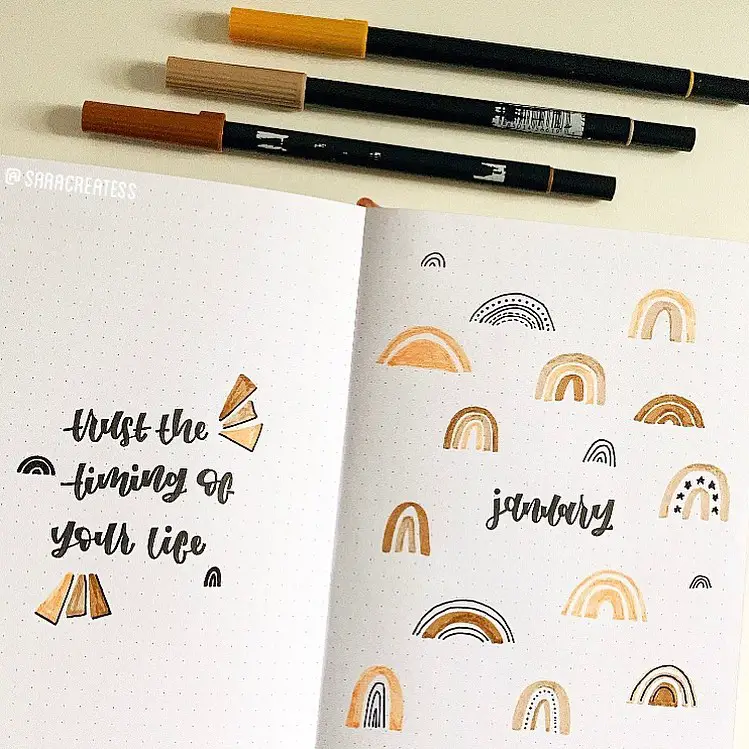 @SARACREATESS
trust the
timing of
your life
january